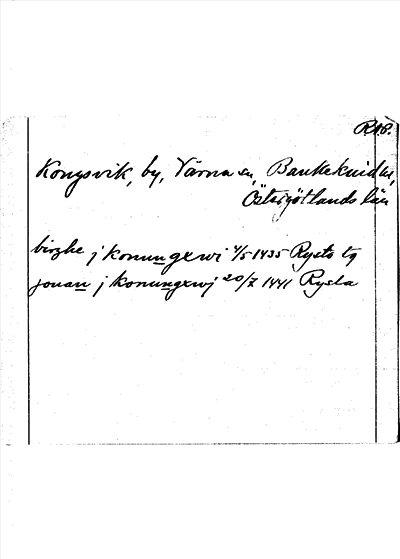 RAP.
Kongsvik, by, Värna sn, Bankekinds hd,
Östergötlands län
birghe j konungxwi 4/5 1435 Rysto tg
jouan j konungxwj 20/7 1441 Rysta